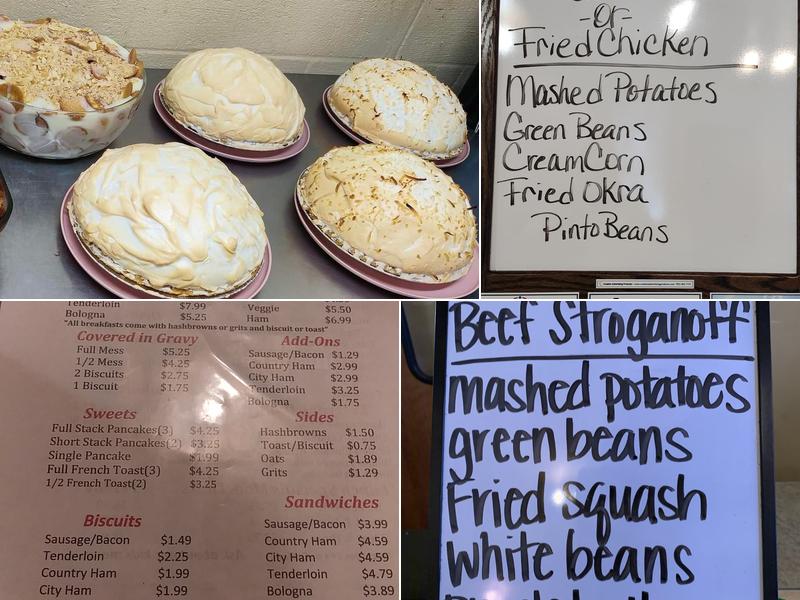 -or-
Fried Chicken
Mashed Potatoes
Green Beans
Cream Corn
Fried Okra
Pinto Beans
Tenderloin $7.99
Bologna $5.25
Veggie $5.50
Ham $6.99
"All breakfasts come with hashbrowns or grits and biscuit or toast"
Covered in Gravy
Full Mess $5.25
1/2 Mess $4.25
2 Biscuits $2.75
1 Biscuit $1.75
Add-Ons
Sausage/Bacon $1.29
Country Ham $2.99
City Ham $2.99
Tenderloin $3.25
Bologna $1.75
Sweets
Full Stack Pancakes(3) $4.25
Short Stack Pancakes(2) $3.25
Single Pancake $1.99
Full French Toast(3) $4.25
1/2 French Toast(2) $3.25
Sides
Hashbrowns $1.50
Toast/Biscuit $0.75
Oats $1.89
Grits $1.29
Biscuits
Sausage/Bacon $1.49
Tenderloin $2.25
Country Ham $1.99
City Ham $1.99
Sandwiches
Sausage/Bacon $3.99
Country Ham $4.59
City Ham $4.59
Tenderloin $4.79
Bologna $3.89
Beef Stroganoff
mashed potatoes
green beans
Fried squash
white beans